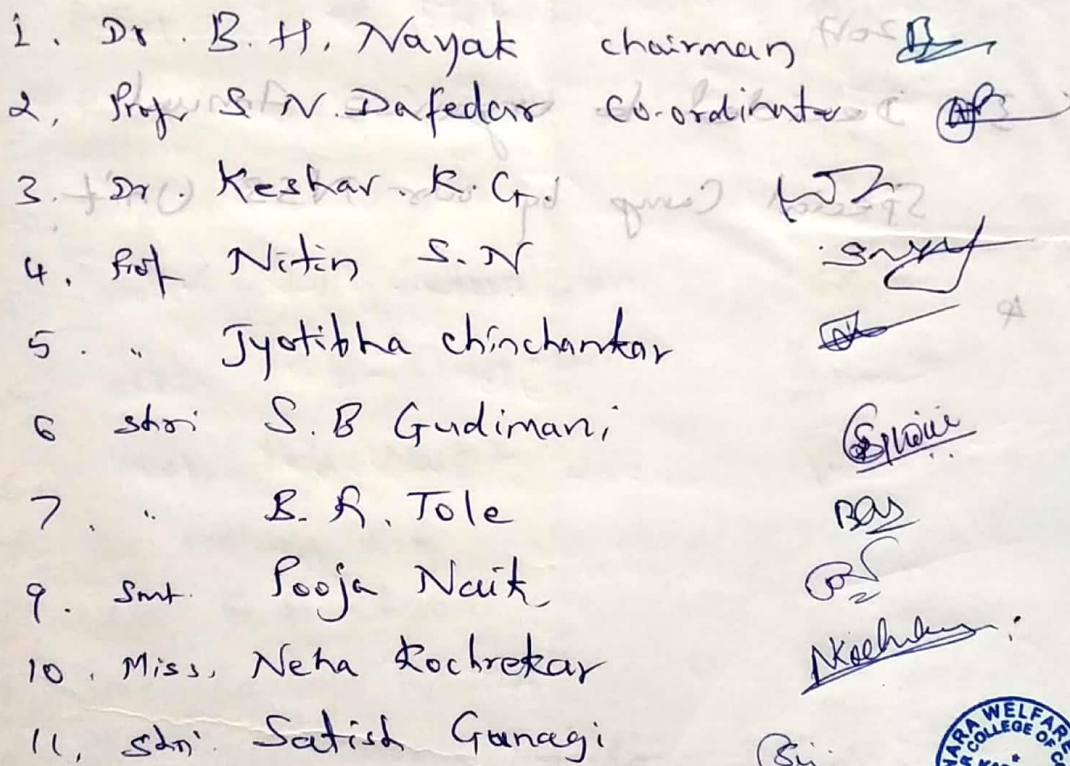 1. Dr. B. H. Nayak chairman
2. Prof S N. Dafedar Co-ordinator
3. Dr. Keshav. K. G.
4. Prof Nitin S. N
5. " Jyotibha chinchankar
6 Shri S. B Gudimani
7. " B. R. Tole
9. Smt. Pooja Naik
10. Miss. Neha Kochrekar
11. Shri Satish Gunagi
WELFARE
COLLEGE OF